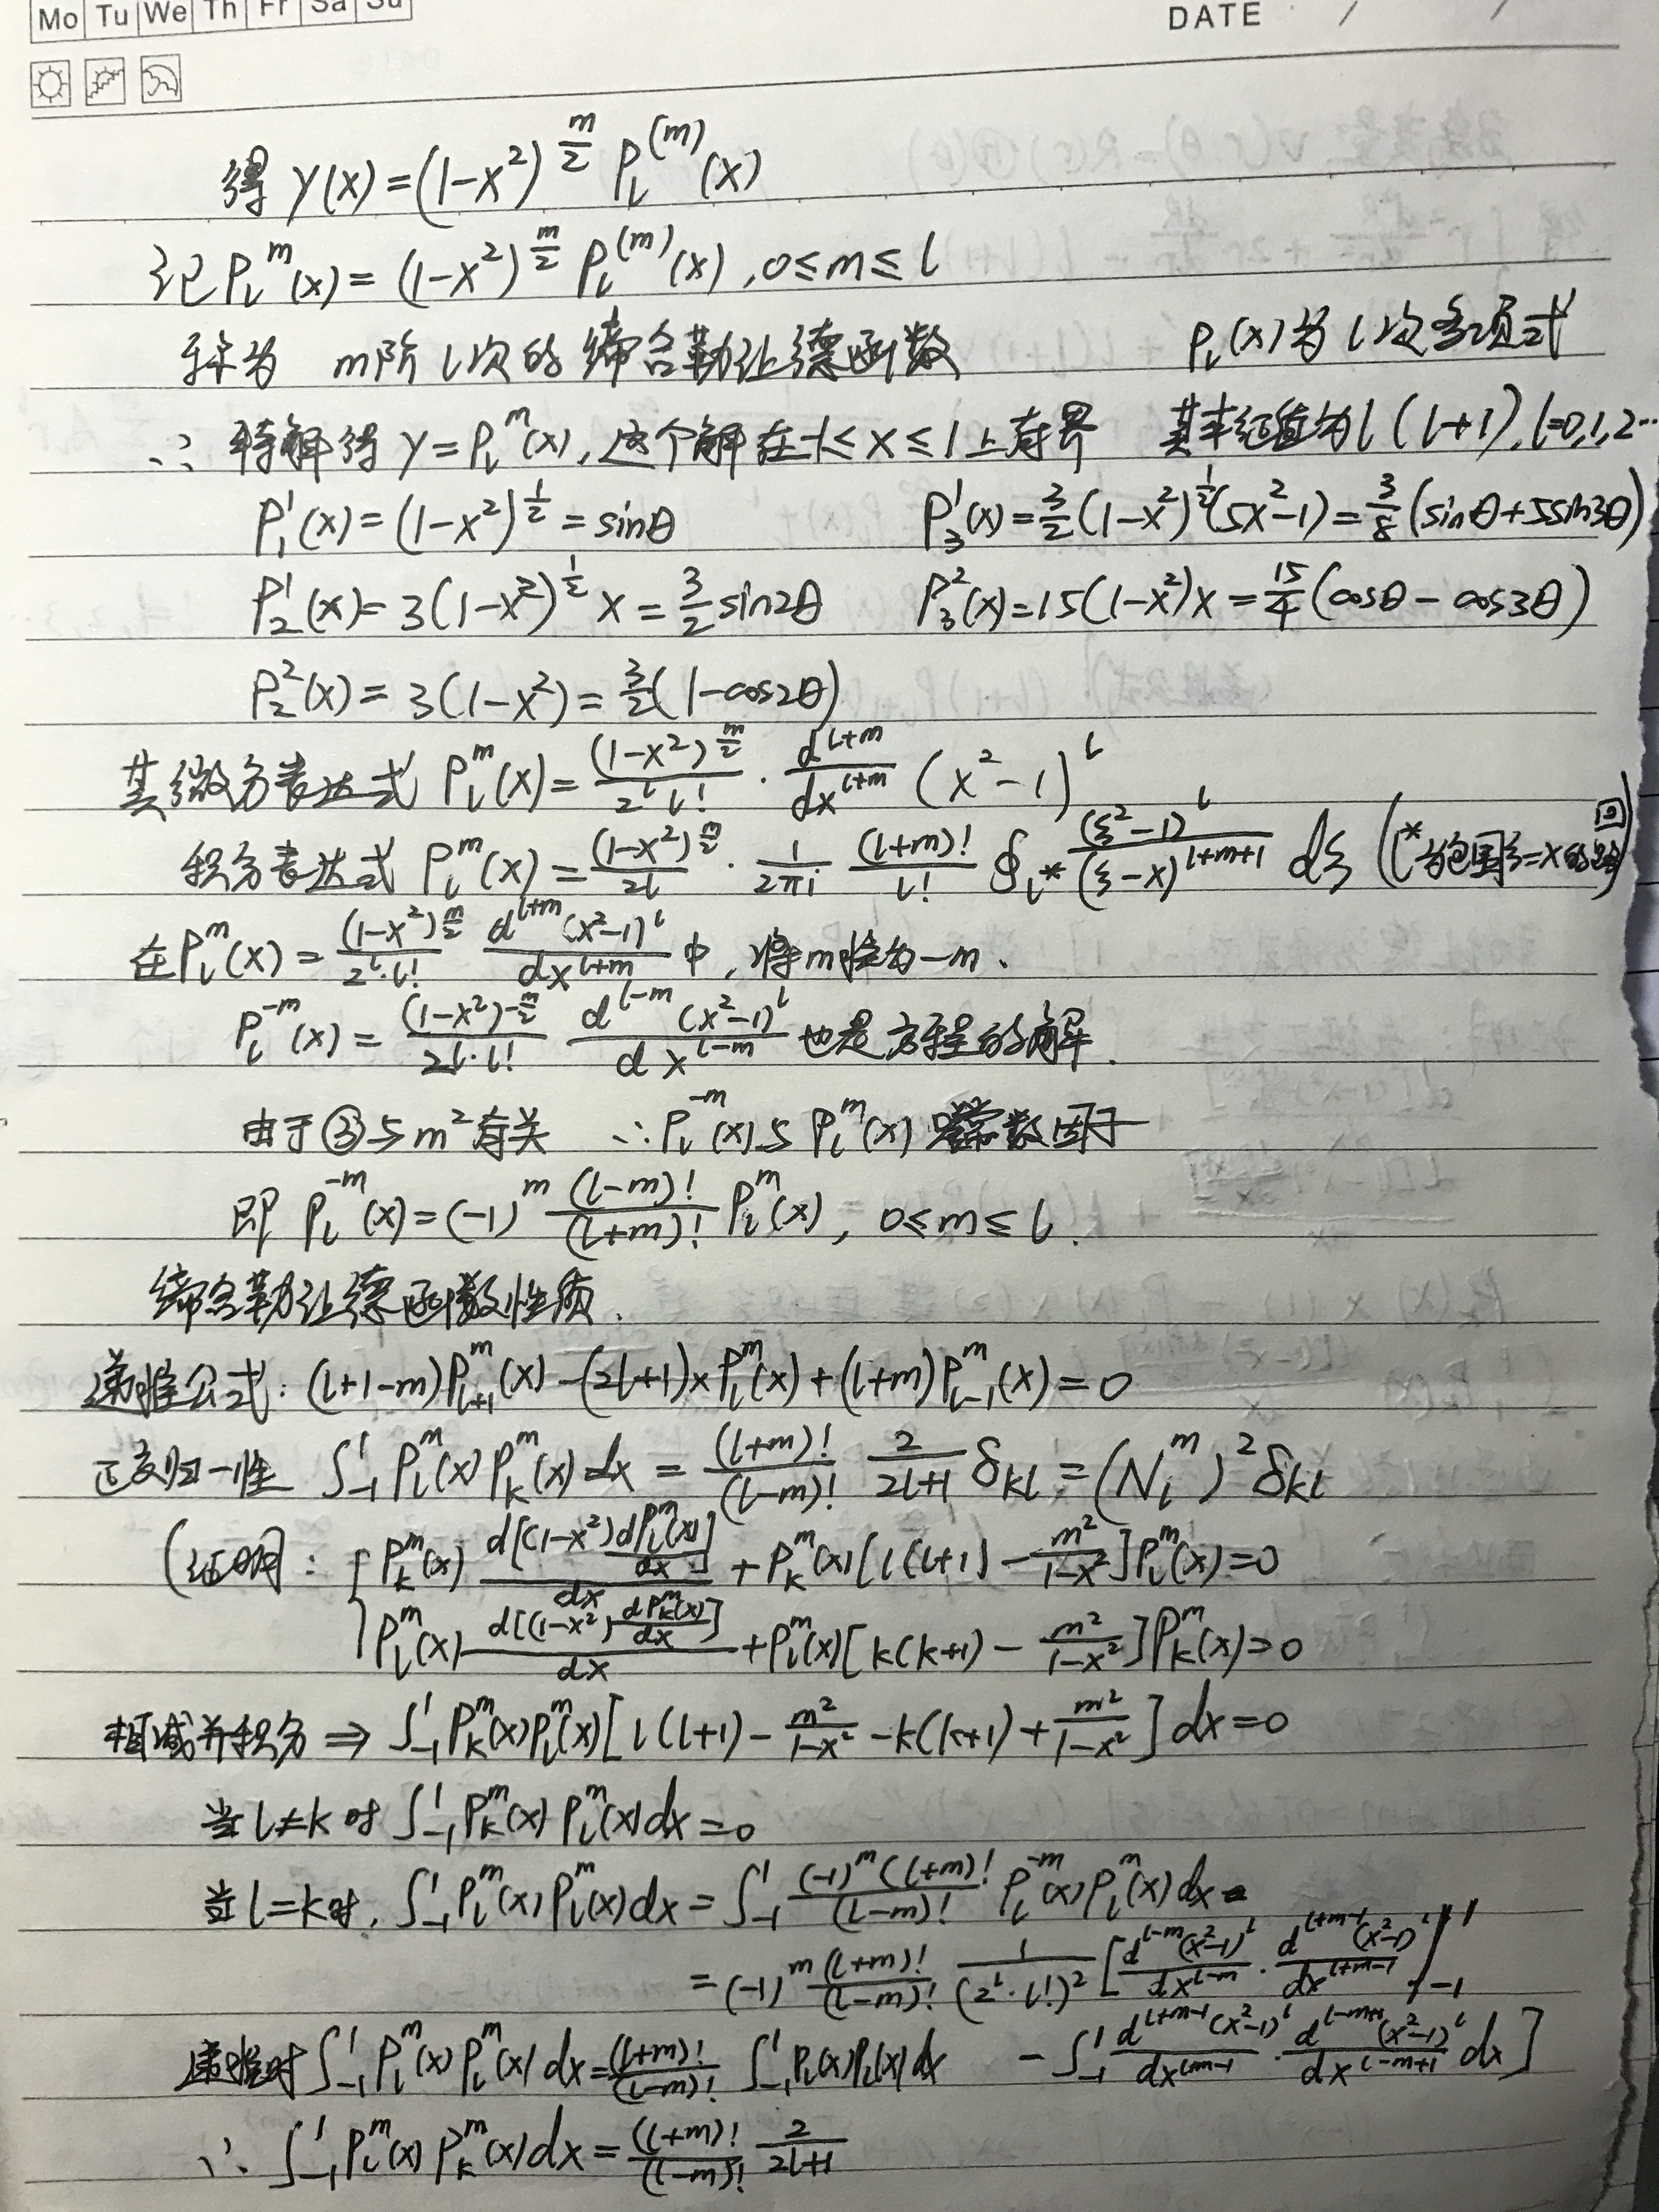 Mo Tu We Th Fr Sa Su
DATE / /
得 y(x) = (1-x²)^{m/2} P_l^{(m)}(x)
记 P_l^m(x) = (1-x²)^{m/2} P_l^{(m)}(x), 0≤m≤l
称为 m阶 l次的缔合勒让德函数 P_l(x)为 l次多项式
∴ 特解得 y = P_l^m(x), 这个解在 -1≤x≤1上有界 其本征值为 l(l+1), l=0,1,2…
P_1^1(x) = (1-x²)^{1/2} = sinθ P_3^1(x) = 3/2 (1-x²)^{1/2}(5x²-1) = 3/8 (sinθ+5sin3θ)
P_2^1(x) = 3(1-x²)^{1/2} x = 3/2 sin2θ P_3^2(x) = 15(1-x²)x = 15/4 (cosθ - cos3θ)
P_2^2(x) = 3(1-x²) = 3/2 (1-cos2θ)
其微分表达式 P_l^m(x) = (1-x²)^{m/2}/(2^l l!) · d^{l+m}/dx^{l+m} (x²-1)^l
积分表达式 P_l^m(x) = (1-x²)^{m/2}/2^l · 1/(2πi) (l+m)!/l! ∮_{l*} (ξ²-1)^l/(ξ-x)^{l+m+1} dξ (l*为包围ξ=x的回路)
在 P_l^m(x) = (1-x²)^{m/2}/(2^l·l!) d^{l+m}(x²-1)^l/dx^{l+m} 中, 将m换为-m.
P_l^{-m}(x) = (1-x²)^{-m/2}/(2^l·l!) d^{l-m}(x²-1)^l/dx^{l-m} 也是方程的解.
由于③与m²有关 ∴ P_l^{-m}(x)与P_l^m(x) 常数因子
即 P_l^{-m}(x) = (-1)^m (l-m)!/(l+m)! P_l^m(x), 0≤m≤l.
缔合勒让德函数性质.
递推公式: (l+1-m)P_{l+1}^m(x) - (2l+1)xP_l^m(x) + (l+m)P_{l-1}^m(x) = 0
正交归一性 ∫_{-1}^1 P_l^m(x)P_k^m(x)dx = (l+m)!/(l-m)! 2/(2l+1) δ_{kl} = (N_l^m)² δ_{kl}
(证明: { P_k^m(x) d[(1-x²) dP_l^m(x)/dx]/dx + P_k^m(x)[l(l+1) - m²/(1-x²)]P_l^m(x) = 0
P_l^m(x) d[(1-x²) dP_k^m(x)/dx]/dx + P_l^m(x)[k(k+1) - m²/(1-x²)]P_k^m(x) = 0
相减并积分 ⇒ ∫_{-1}^1 P_k^m(x)P_l^m(x)[l(l+1) - m²/(1-x²) - k(k+1) + m²/(1-x²)]dx = 0
当 l≠k 时 ∫_{-1}^1 P_k^m(x)P_l^m(x)dx = 0
当 l=k时, ∫_{-1}^1 P_l^m(x)P_l^m(x)dx = ∫_{-1}^1 (-1)^m(l+m)!/(l-m)! P_l^{-m}(x)P_l^m(x)dx
= (-1)^m (l+m)!/(l-m)! 1/(2^l·l!)² [d^{l-m}(x²-1)^l/dx^{l-m} · d^{l+m-1}(x²-1)^l/dx^{l+m-1} |_{-1}^1
- ∫_{-1}^1 d^{l+m-1}(x²-1)^l/dx^{l+m-1} · d^{l-m+1}(x²-1)^l/dx^{l-m+1} dx]
递推时 ∫_{-1}^1 P_l^m(x)P_l^m(x)dx = (l+m)!/(l-m)! ∫_{-1}^1 P_l(x)P_l(x)dx
∴ ∫_{-1}^1 P_l^m(x)P_k^m(x)dx = (l+m)!/(l-m)! 2/(2l+1)